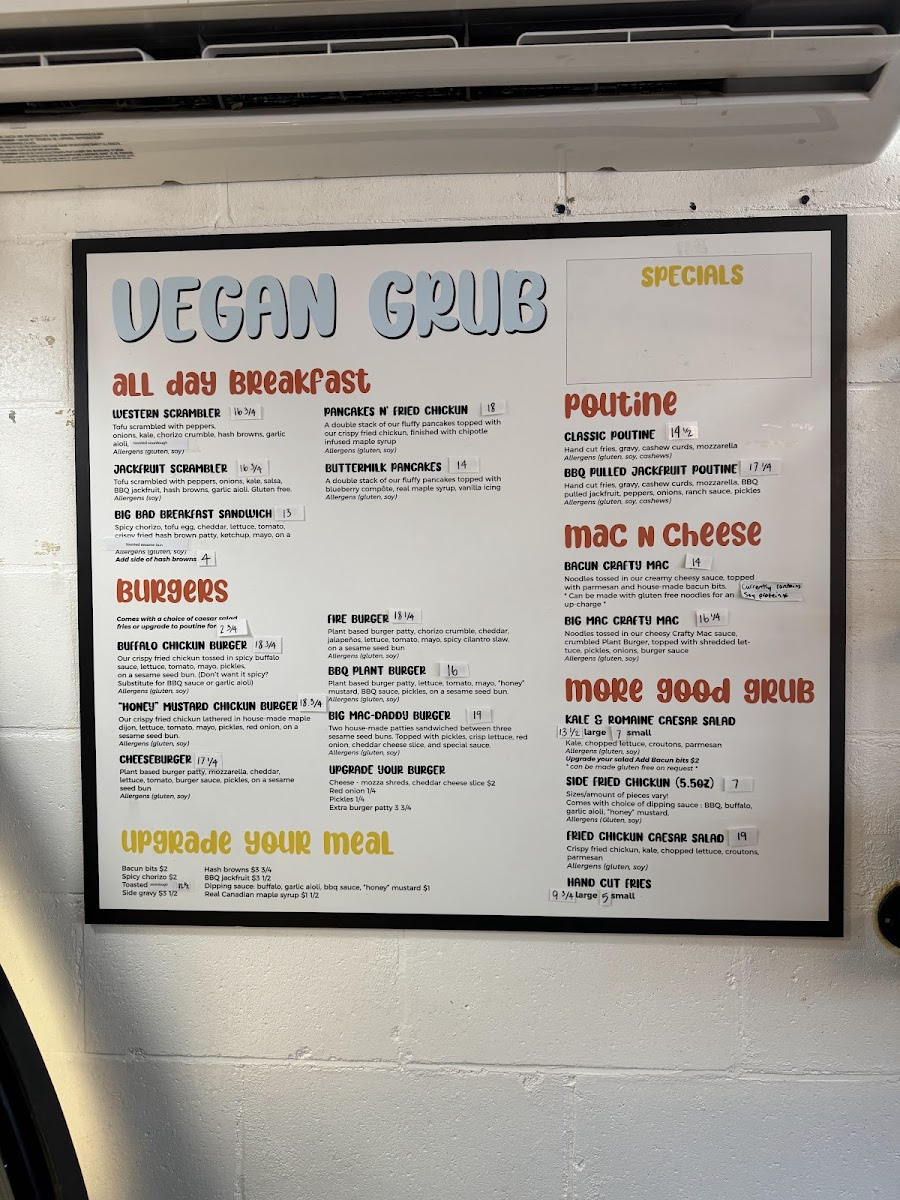 VEGAN GRUB
SPECIALS
all day Breakfast
WESTERN SCRAMBLER 16 3/4
Tofu scrambled with peppers,
onions, kale, chorizo crumble, hash browns, garlic
aioli, toasted sourdough
Allergens (gluten, soy)
JACKFRUIT SCRAMBLER 16 3/4
Tofu scrambled with peppers, onions, kale, salsa,
BBQ jackfruit, hash browns, garlic aioli. Gluten free.
Allergens (soy)
BIG BAD BREAKFAST SANDWICH 13
Spicy chorizo, tofu egg, cheddar, lettuce, tomato,
crispy fried hash brown patty, ketchup, mayo, on a
toasted sesame bun
Allergens (gluten, soy)
Add side of hash browns 4
PANCAKES N' FRIED CHICKUN 18
A double stack of our fluffy pancakes topped with
our crispy fried chickun, finished with chipotle
infused maple syrup
Allergens (gluten, soy)
BUTTERMILK PANCAKES 14
A double stack of our fluffy pancakes topped with
blueberry compôte, real maple syrup, vanilla icing
Allergens (gluten, soy)
Burgers
Comes with a choice of caesar salad,
fries or upgrade to poutine for 2 3/4
BUFFALO CHICKUN BURGER 18 3/4
Our crispy fried chickun tossed in spicy buffalo
sauce, lettuce, tomato, mayo, pickles,
on a sesame seed bun. (Don't want it spicy?
Substitute for BBQ sauce or garlic aioli)
Allergens (gluten, soy)
"HONEY" MUSTARD CHICKUN BURGER 18.3/4
Our crispy fried chickun lathered in house-made maple
dijon, lettuce, tomato, mayo, pickles, red onion, on a
sesame seed bun.
Allergens (gluten, soy)
CHEESEBURGER 17 1/4
Plant based burger patty, mozzarella, cheddar,
lettuce, tomato, burger sauce, pickles, on a sesame
seed bun
Allergens (gluten, soy)
FIRE BURGER 18 1/4
Plant based burger patty, chorizo crumble, cheddar,
jalapeños, lettuce, tomato, mayo, spicy cilantro slaw,
on a sesame seed bun
Allergens (gluten, soy)
BBQ PLANT BURGER 16
Plant based burger patty, lettuce, tomato, mayo, "honey"
mustard, BBQ sauce, pickles, on a sesame seed bun.
Allergens (gluten, soy)
BIG MAC-DADDY BURGER 19
Two house-made patties sandwiched between three
sesame seed buns. Topped with pickles, crisp lettuce, red
onion, cheddar cheese slice, and special sauce.
Allergens (gluten, soy)
UPGRADE YOUR BURGER
Cheese - mozza shreds, cheddar cheese slice $2
Red onion 1/4
Pickles 1/4
Extra burger patty 3 3/4
upgrade your meal
Bacun bits $2
Spicy chorizo $2
Toasted sourdough
Side gravy $3 1/2
Hash browns $3 3/4
BBQ jackfruit $3 1/2
Dipping sauce: buffalo, garlic aioli, bbq sauce, "honey" mustard $1
Real Canadian maple syrup $1 1/2
poutine
CLASSIC POUTINE 14 1/2
Hand cut fries, gravy, cashew curds, mozzarella
Allergens (gluten, soy, cashews)
BBQ PULLED JACKFRUIT POUTINE 17 1/4
Hand cut fries, gravy, cashew curds, mozzarella, BBQ
pulled jackfruit, peppers, onions, ranch sauce, pickles
Allergens (gluten, soy, cashews)
mac n cheese
BACUN CRAFTY MAC 14
Noodles tossed in our creamy cheesy sauce, topped
with parmesan and house-made bacun bits.
* Can be made with gluten free noodles for an
up-charge *
Currently contains
Soy protein *
BIG MAC CRAFTY MAC 16 1/4
Noodles tossed in our cheesy Crafty Mac sauce,
crumbled Plant Burger, topped with shredded let-
tuce, pickles, onions, burger sauce
Allergens (gluten, soy)
more good grub
KALE & ROMAINE CAESAR SALAD
13 1/2 large 7 small
Kale, chopped lettuce, croutons, parmesan
Allergens (gluten, soy)
Upgrade your salad Add Bacun bits $2
* can be made gluten free on request *
SIDE FRIED CHICKUN (5.5oz) 7
Sizes/amount of pieces vary!
Comes with choice of dipping sauce : BBQ, buffalo,
garlic aioli, "honey" mustard.
Allergens (Gluten, soy)
FRIED CHICKUN CAESAR SALAD 19
Crispy fried chickun, kale, chopped lettuce, croutons,
parmesan
Allergens (gluten, soy)
HAND CUT FRIES
9 3/4 large 5 small